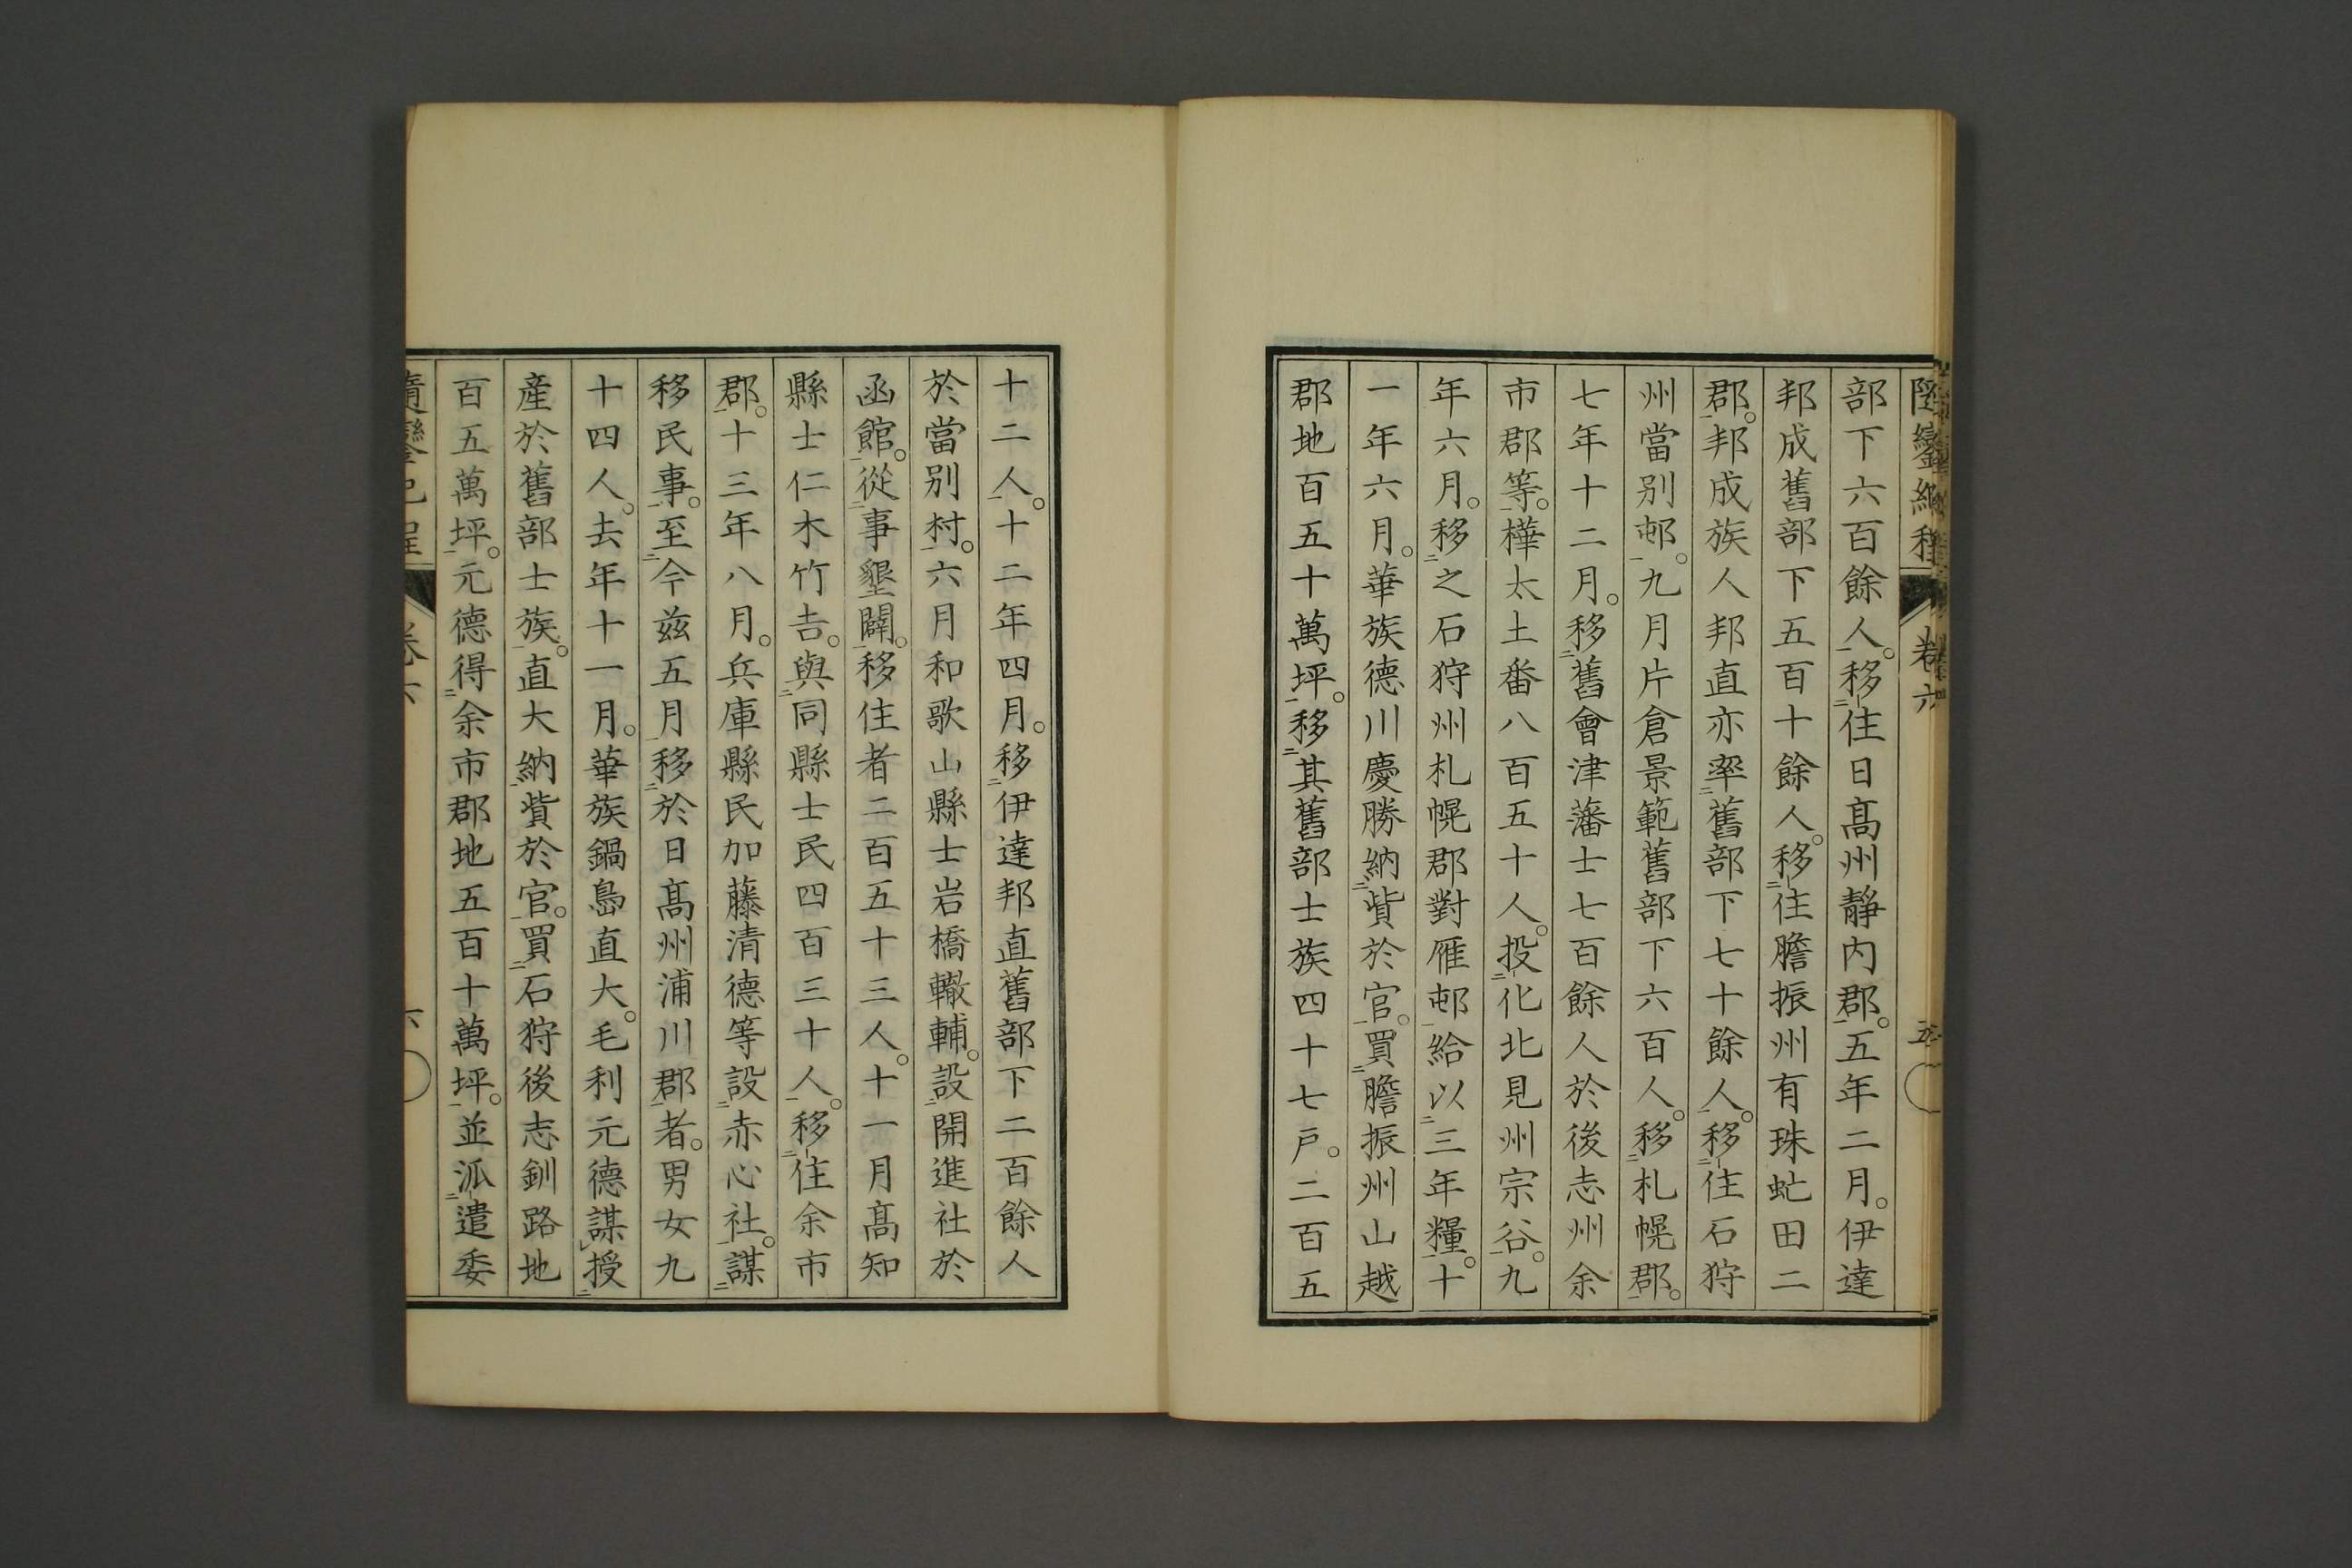 部下六百餘人。移住日髙州靜内郡。五年二月。伊達
邦成舊部下五百十餘人。移住膽振州有珠虻田二
郡。邦成族人邦直亦率舊部下七十餘人。移住石狩
州當別邨。九月片倉景範舊部下六百人。移札幌郡。
七年十二月。移舊會津藩士七百餘人於後志州余
市郡等。樺太土番八百五十人。投化北見州宗谷。九
年六月。移之石狩州札幌郡對雁邨給以三年糧。十
一年六月。華族德川慶勝納貲於官。買膽振州山越
郡地百五十萬坪。移其舊部士族四十七戸。二百五
十二人。十二年四月。移伊達邦直舊部下二百餘人
於當别村。六月和歌山縣士岩橋轍輔。設開進社於
函館。從事墾闢。移住者二百五十三人。十一月髙知
縣士仁木竹吉。與同縣士民四百三十人。移住余市
郡。十三年八月。兵庫縣民加藤清德等設赤心社。謀
移民事。至今兹五月移於日髙州浦川郡者。男女九
十四人。去年十一月。華族鍋島直大。毛利元德謀授
產於舊部士族。直大納貲於官。買石狩後志釧路地
百五萬坪。元德得余市郡地五百十萬坪。並派遣委
隨鑾紀程 卷六 六